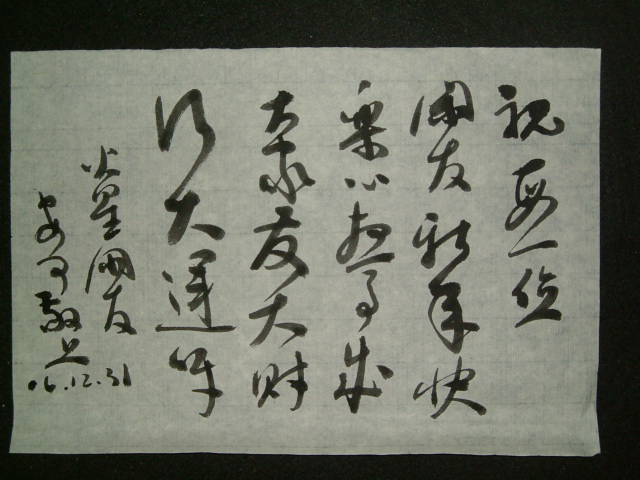 祝每一位
网友新年快
乐心想事成
大家发大财
行大運呀
火星网友
敬上
16.12.31